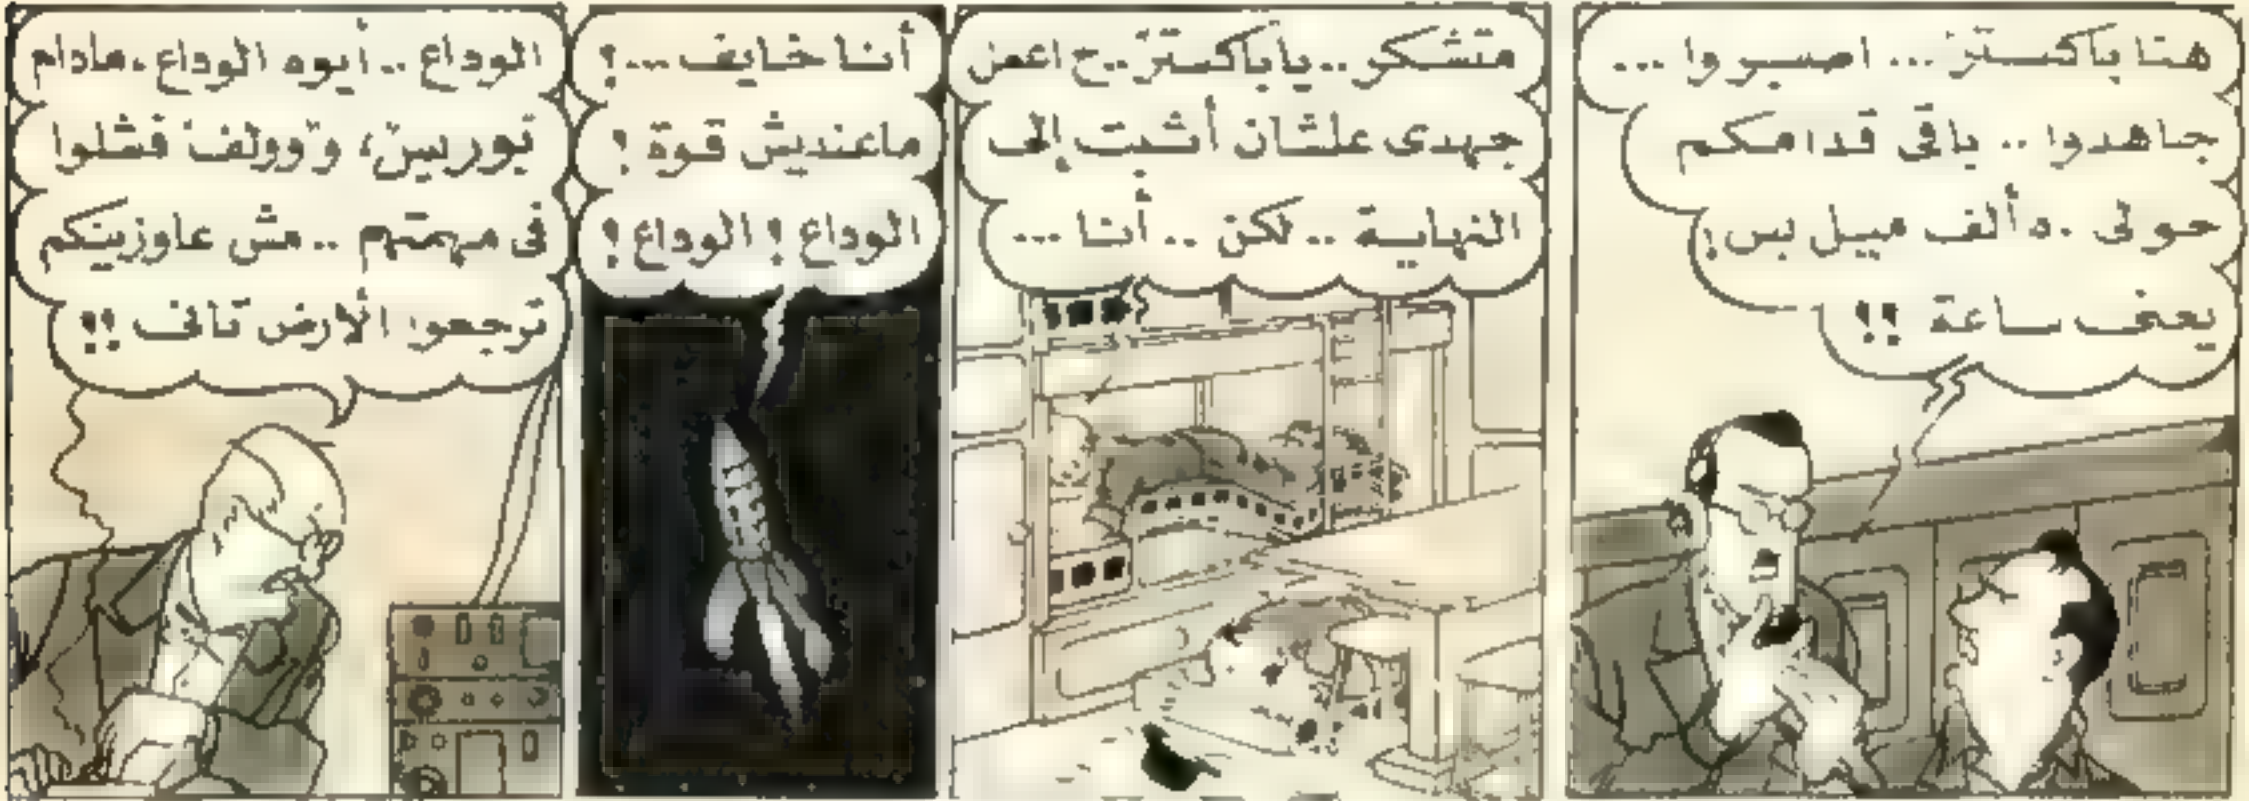 هنا باكستر... اصبروا ...
جاهدوا .. باقى قدامكم
حولى ٥٠ ألف ميل بس!
يعنى ساعة !!
متشكر.. ياباكستر..ح اعمل
جهدى علشان أثبت إلى
النهاية .. لكن .. أنا ...
أنا خايف ...؟
ماعنديش قوة !
الوداع ! الوداع !
الوداع .. أيوه الوداع .مادام
"بوريس"، و"وولف" فشلوا
فى مهمتهم .. مش عاوزينكم
ترجعوا الأرض تانى !!